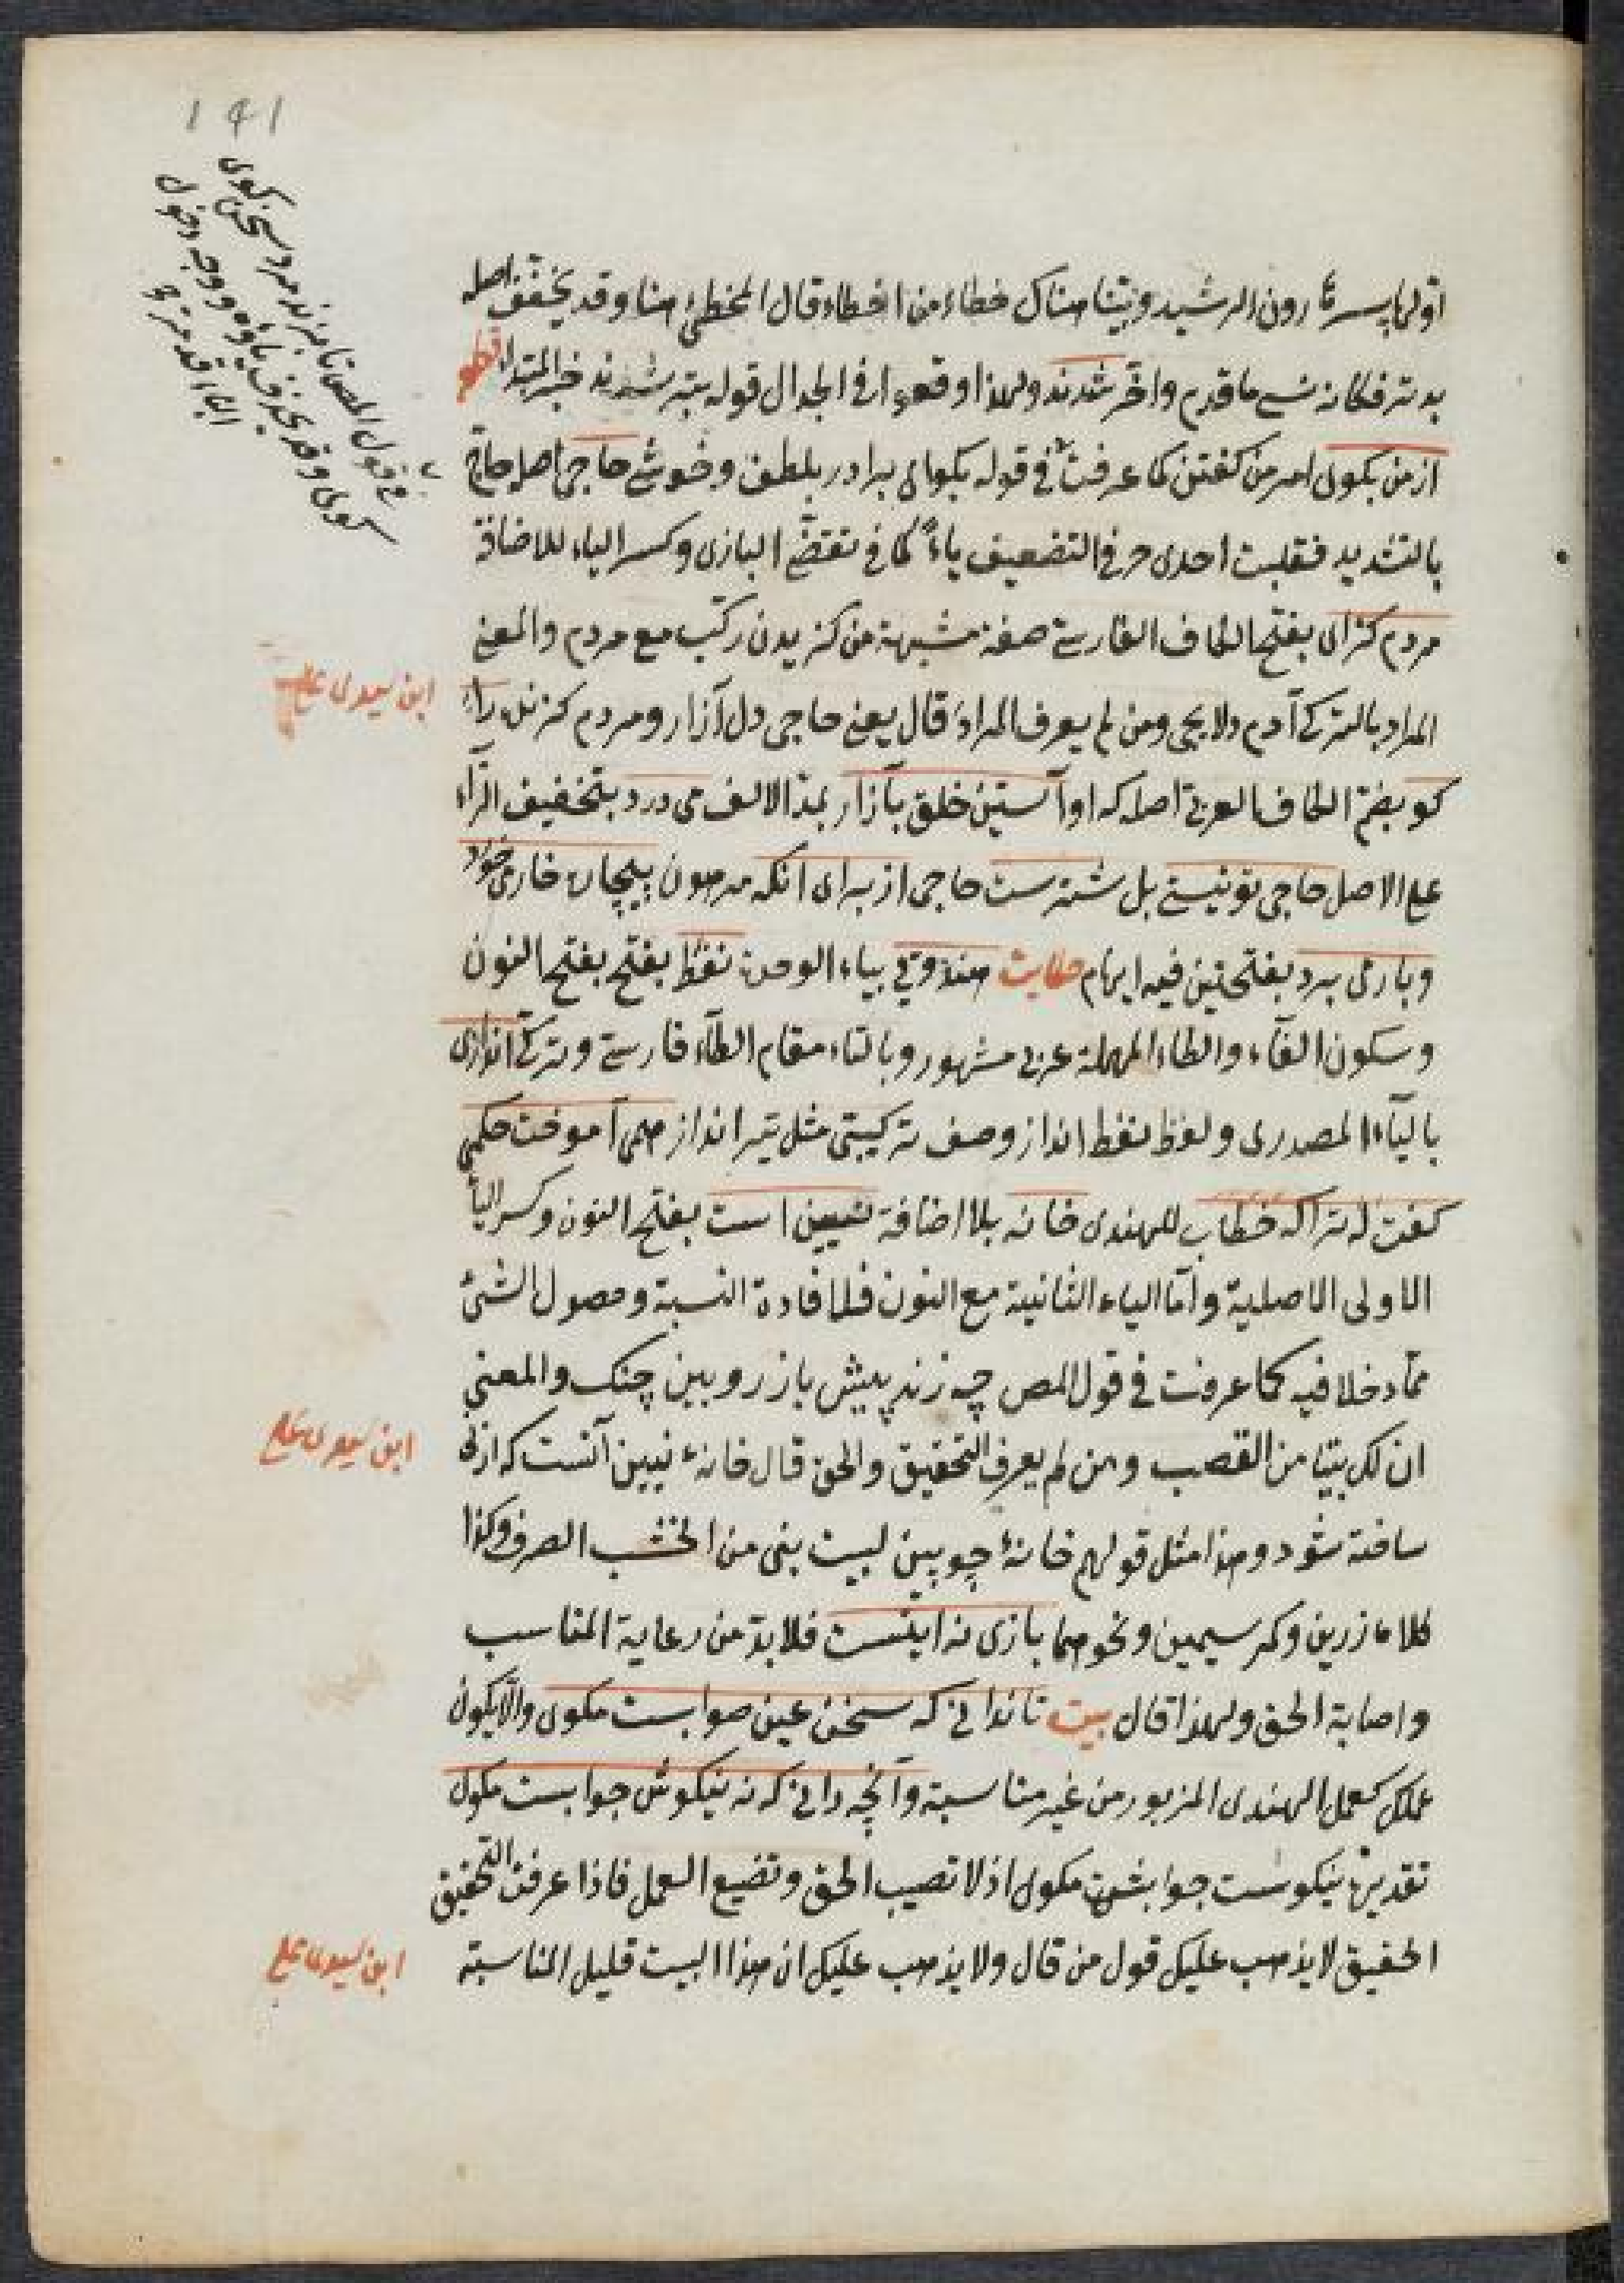 141
اولها پسر هارون الرشيد وبيننا هناك خطاء من اخطاء قال المخطئ هنا وقد يخفف اصله
بدتر فكانه نسي ما قدم واخر شدند ولهذا وقعوا في الجدال قوله بتر شدند خبر المبتدا قطعه
از من بكوى امر من كفتن كما عرفت في قوله بكو اى برادر بلطف وخوشى حاجى اصله حاج
بالتشديد فقلبت احدى حرفى التضعيف ياء كما في تقضى البازى وكسر الياء للاضافة
مردم كزاى بفتح الكاف الفارسية صفة مشبهة من كزيدن ركب مع مردم والمعنى
المراد بالتركى آدم دلايجى ومن لم يعرف المراد قال يعنى حاجى دل آزار ومردم كزنده را
كو بضم الكاف العربى اصله كه او آستين خلق بآزار بمد الالف مى درد بتخفيف الراء
على الاصل حاجى تو نيستى بل شترست حاجى از براى انكه بيچاره خار مى خورد
وبار مى برد بفتحتين فيه ايهام حكايت هندوى بياء الوحدة نفط بفتح بفتح النون
وسكون الفاء والطاء المهملة عربى مشهور وبالتاء مقام الطاء فارسى وتركى اندازى
بالياء المصدرى ولفظ نفط انداز وصف تركيبى مثل تير انداز همى آموخت حكيمى
كفت ترا كه خطاب للهندى خانه بلا اضافة نيين است بفتح النون وكسر الياء
الاولى الاصلية واما الياء الثانية مع النون فلافادة النسبة وحصول الشئ
مما دخلا فيه كما عرفت في قول المص چه زند پيش باز رويين چنك والمعنى
ان لك بيتا من القصب ومن لم يعرف التحقيق والحق قال خانهء نيين آنست كه از نى
ساخته شود وهذا مثل قولهم خانهء چوبين لبيت بنى من الخشب الصرف وكذا
كلاه زرين وكمر سيمين ونحوهما بازى نه اينست فلا بد من رعاية المناسب
واصابة الحق ولهذا قال بيت تا ندانى كه سخن عين صوابست مكوى والا يكون
عملك كعمل الهندى المزبور من غير مناسبة وآنچه دانى كه نه نيكوش جوابست مكوى
تقديره نيكوست جوابش مكوى اذ لا تصيب الحق وتضيع العمل فاذا عرفت التحقيق
الحقيق لا يذهب عليك قول من قال ولا يذهب عليك ان هذا البيت قليل المناسبة
ابن سيدى على
ابن سيدى على
ابن سيدى على